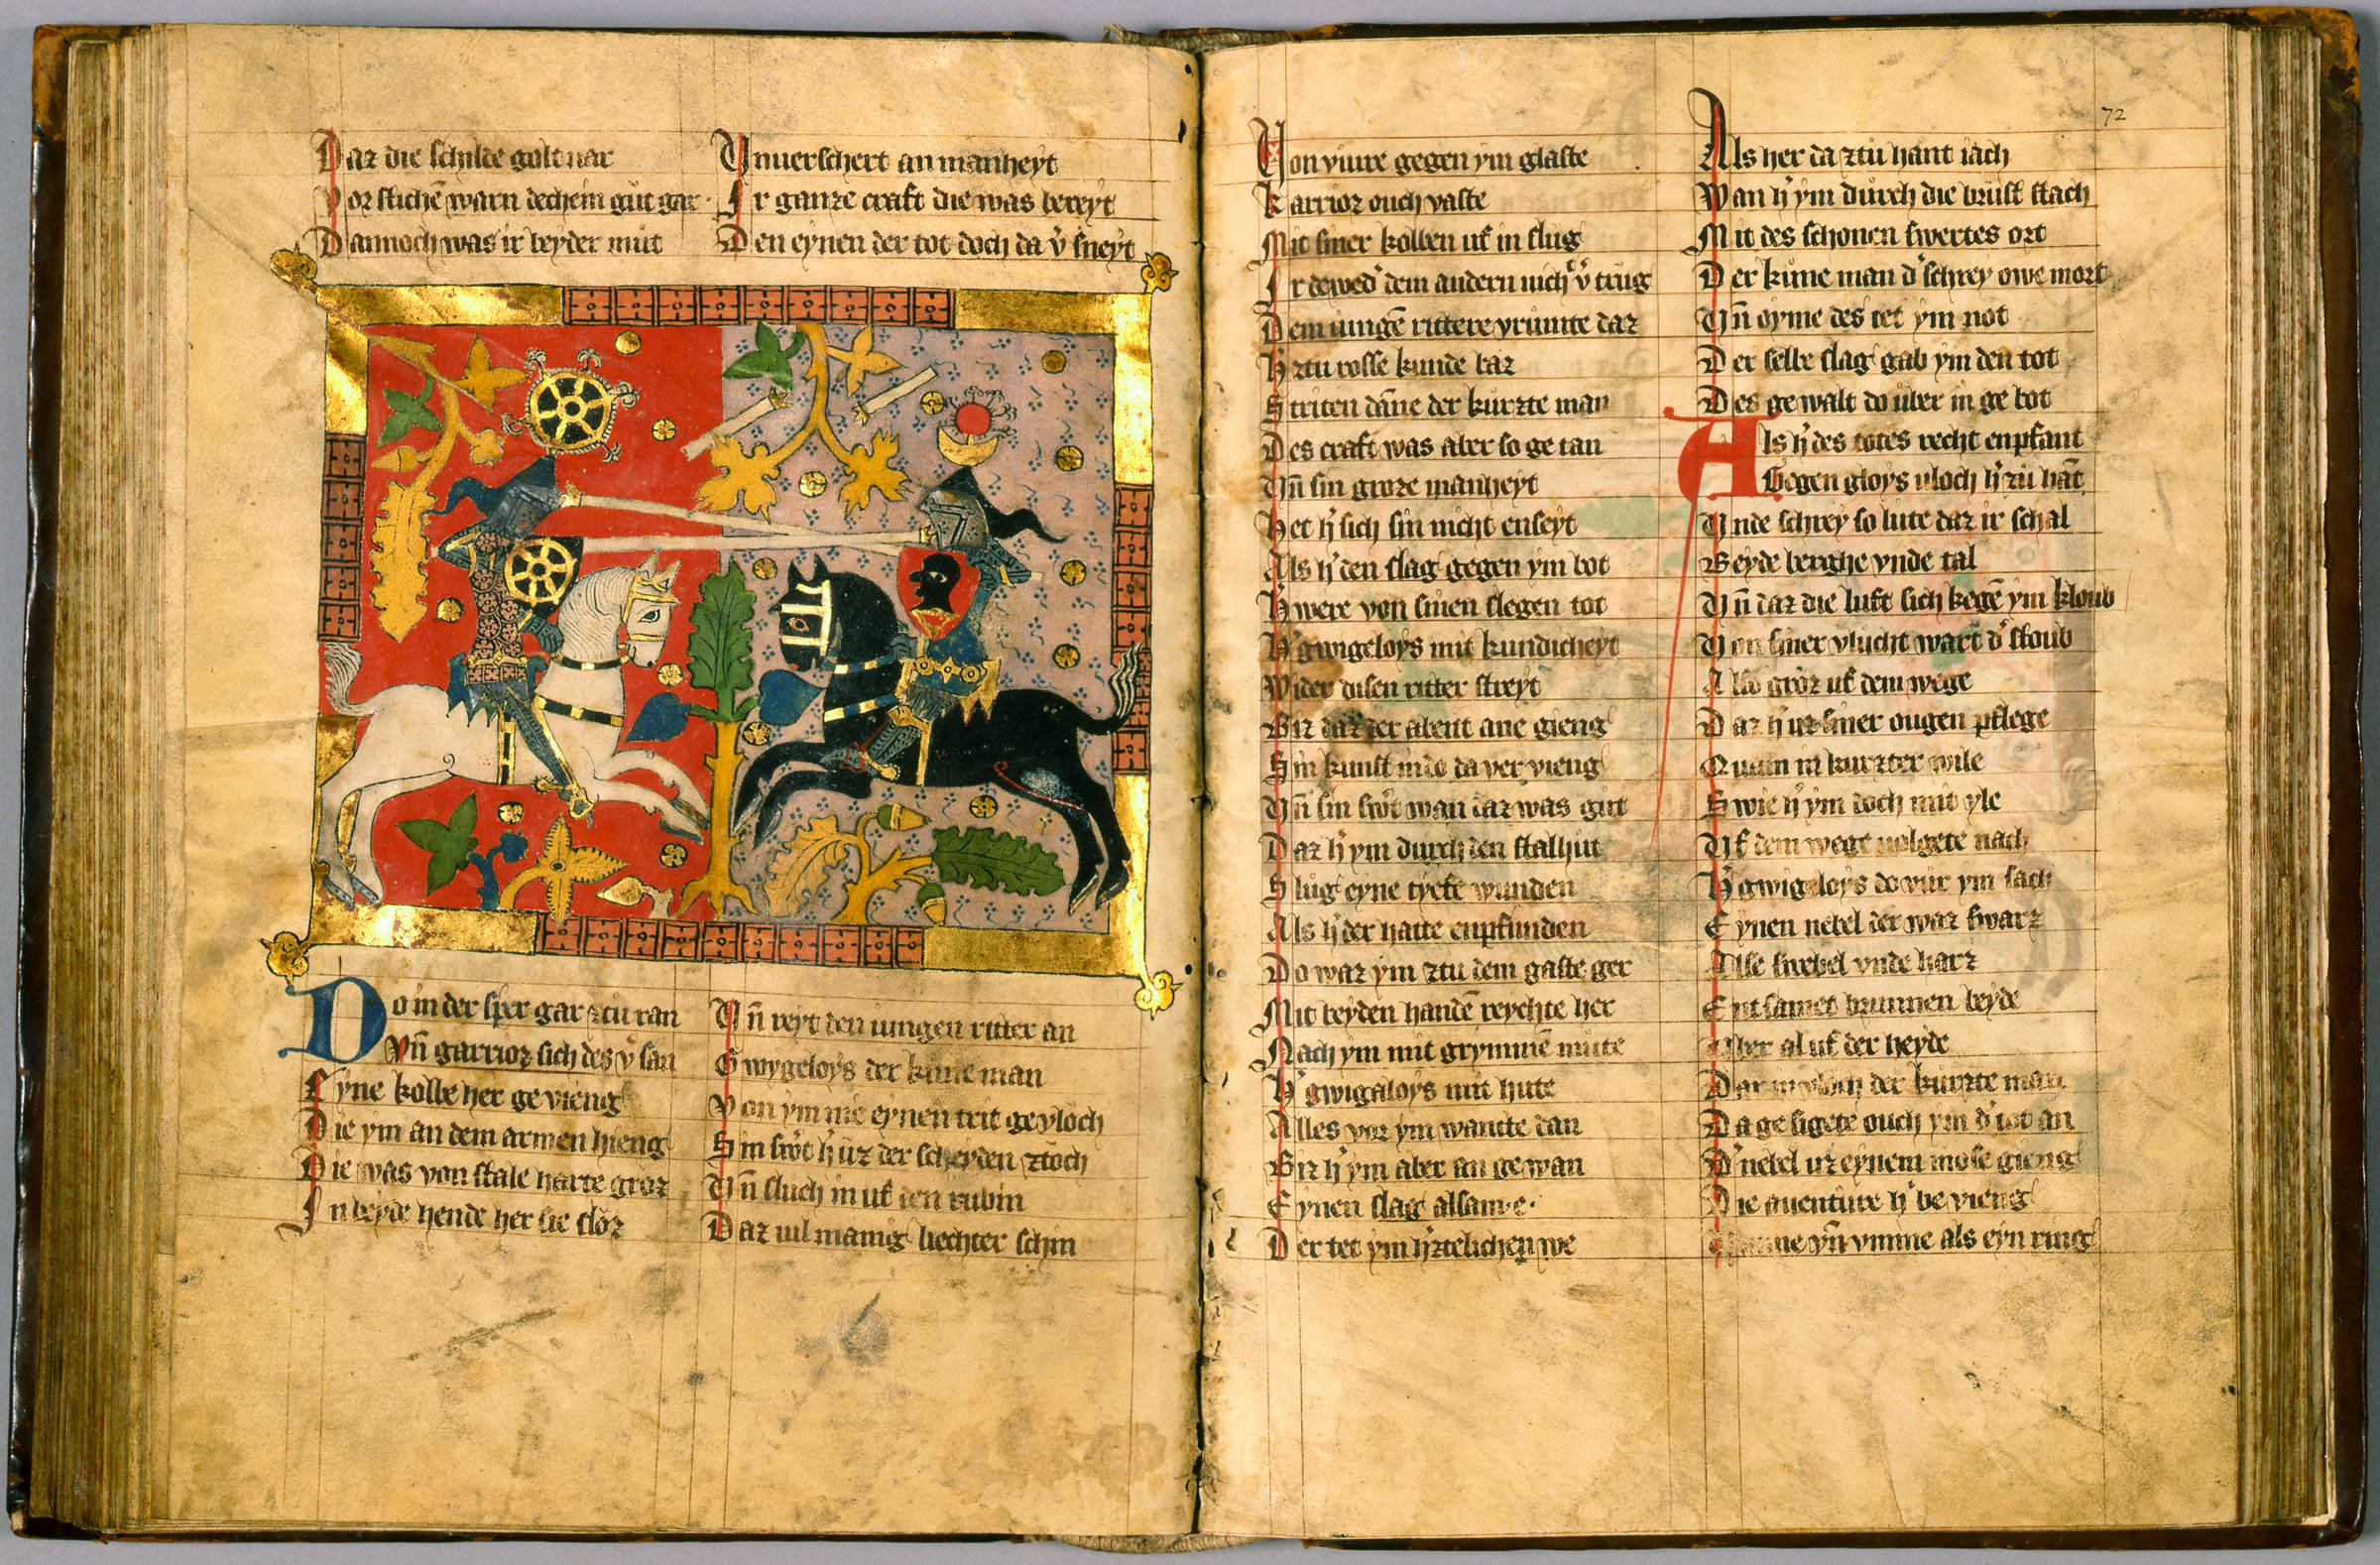 Daz die schilde golt nar
Vor stichē warn dechein gůt gar
Dannoch was ir beyder můt
Vnuerschert an manheyt
Ir ganze craft die was bereyt
Den eynen der tot doch da v̾sneyt
Do in der sper gar ztu ran
Vn̄ garrioz sich des v̾san
Eyne kolbe her gevieng
Die ym an dem armen hieng
Die was von stale harte groz
In beyde hende her sie sloz
Vn̄ reyt den iungen ritter an
Gwygeloys der kůne man
Von ym nie eynen trit gevloch
Sin sw̾t h̾ uz der scheyden ztoch
Vn̄ sluch in uf den rubin
Daz vil manig liechter schin
Von viure gegen ym glaste
Karrioz ouch vaste
Mit siner kolben uf in slug
Ir dewed̾ dem andern nicht v̾trug
Dem iungē rittere vrumte daz
H̾ ztu rosse kunde baz
Striten dāne der kurzte man
Des craft was aber so getan
Vn̄ sin groze manheyt
Het h̾ sich sin nicht enseyt
Als h̾ den slag gegen ym bot
H̾ were von sinen slegen tot
H̾ gwigeloys mit kundicheyt
Wider disen ritter streyt
Biz daz der abent ane gieng
Sin kunst in do da ver vieng
Vn̄ sin sw̾t wan daz was gůt
Daz h̾ ym durch den stalhut
Slug eyne tyefe wunden
Als h̾ der hatte enpfunden
Do waz ym ztu dem gaste ger
Mit beyden handē reychte her
Nach ym mit grymmē mute
H̾ gwigeloys mit hute
Alles vor ym wante dan
Biz h̾ ym aber an gewan
Eynen slag alsam e
Der tet ym h̾ztelichen we
72
Als her da ztu hant iach
Wan h̾ ym durch die brust stach
Mit des schonen swertes ort
Der kůne man d̾ schrey owe mort
Vn̄ oyme des tet ym not
Der selbe slag gab ym den tot
Des gewalt do uber in gebot
Als h̾ des totes recht enpfant
Gegen gloys vloch h̾ zu hāt
Vnde schrey so lute daz ir schal
Beyde berghe vnde tal
Vn̄ daz die luft sich kegē ym kloub
Von siner vlucht wart d̾ stoub
Also groz uf dem wege
Daz h̾ uz siner ougen pflege
Quam in kurzter wile
Swie h̾ ym doch mit yle
Uf dem wege volgete nach
H̾ gwigeloys do vur ym sach
Eynen nebel der waz swarz
Alse swebel vnde harz
Entsamet brunnen beyde
Vber al uf der heyde
der kurzte man
Da gesigete ouch ym d̾ tot an
D̾ nebel uz eynem mose gieng
Die auentiure h̾ bevieng
vn̄ vmme als eyn ring